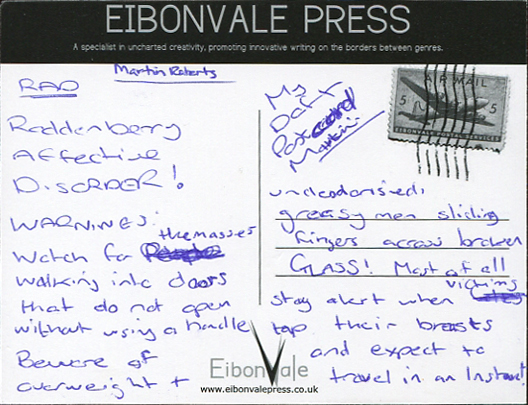 EIBONVALE PRESS
A specialist in uncharted creativity, promoting innovative writing on the borders between genres.
Martin Roberts
RAD
Roddenberry
Affective
DisoRDER!
WARNINGS:
Watch for the masses
walking into doors
that do not open
without using a handle
Beware of
overweight +
My
Daft
Postcard
Martin.
AIR MAIL
5 5
EIBONVALE POSTAL SERVICES
undeodorised,
greasy men sliding
fingers across broken
GLASS! Most of all
stay alert when victims
tap their breasts
and expect to
travel in an Instant
EibonVale
www.eibonvalepress.co.uk